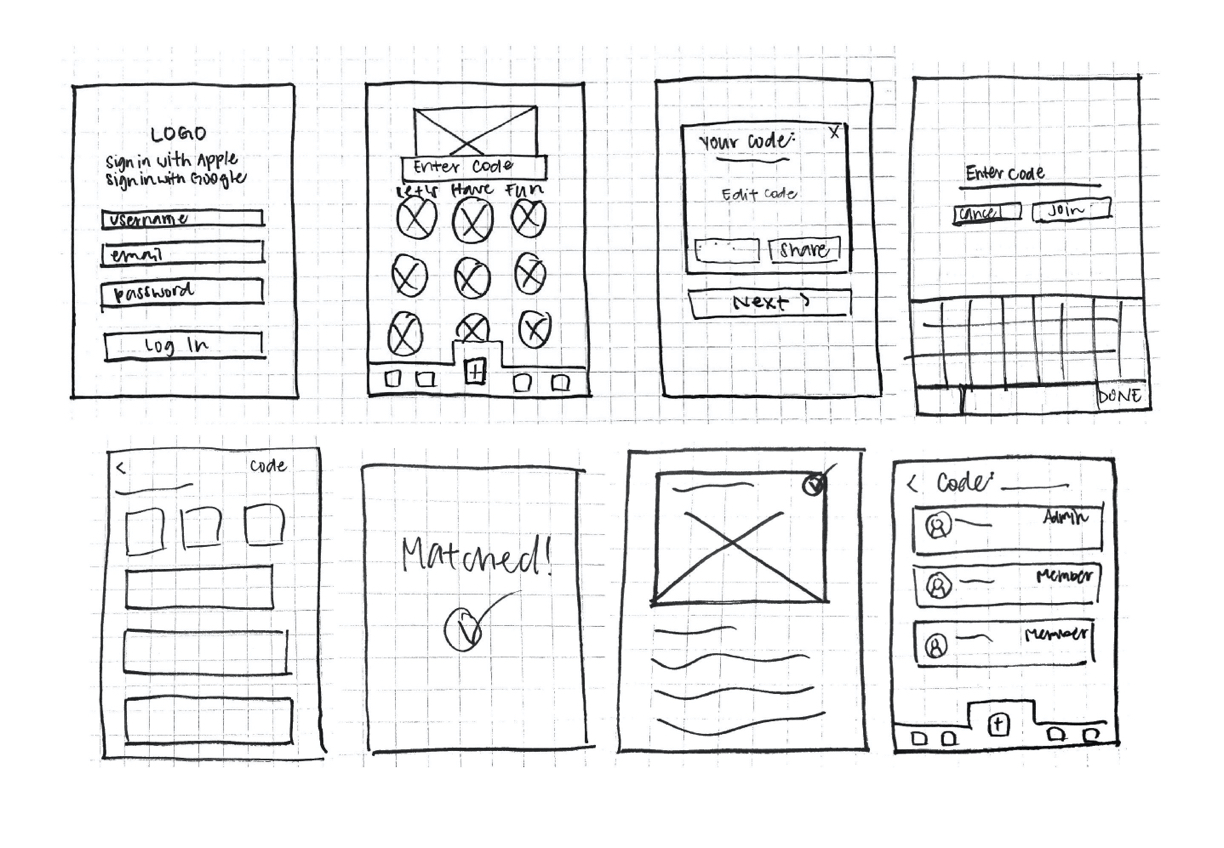 LOGO
Sign in with Apple
Sign in with Google
username
email
password
Log In
Enter Code
Let's Have Fun
Your Code:
X
Edit Code
Share
Next >
Enter Code
Cancel
Join
DONE
< Code
Matched!
< Code:
Admin
Member
Member